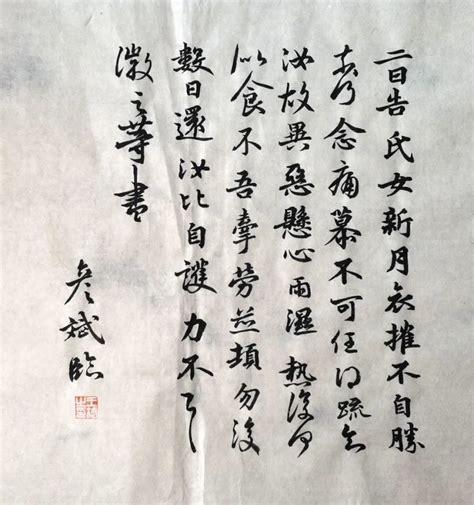 二日告氏女新月哀摧不自勝
奈何念痛慕不可任得疏知
汝故異惡懸心雨濕熱復何
似食不吾牽勞並頓勿復
數日還汝比自護力不一一
徽之等書
彦斌臨